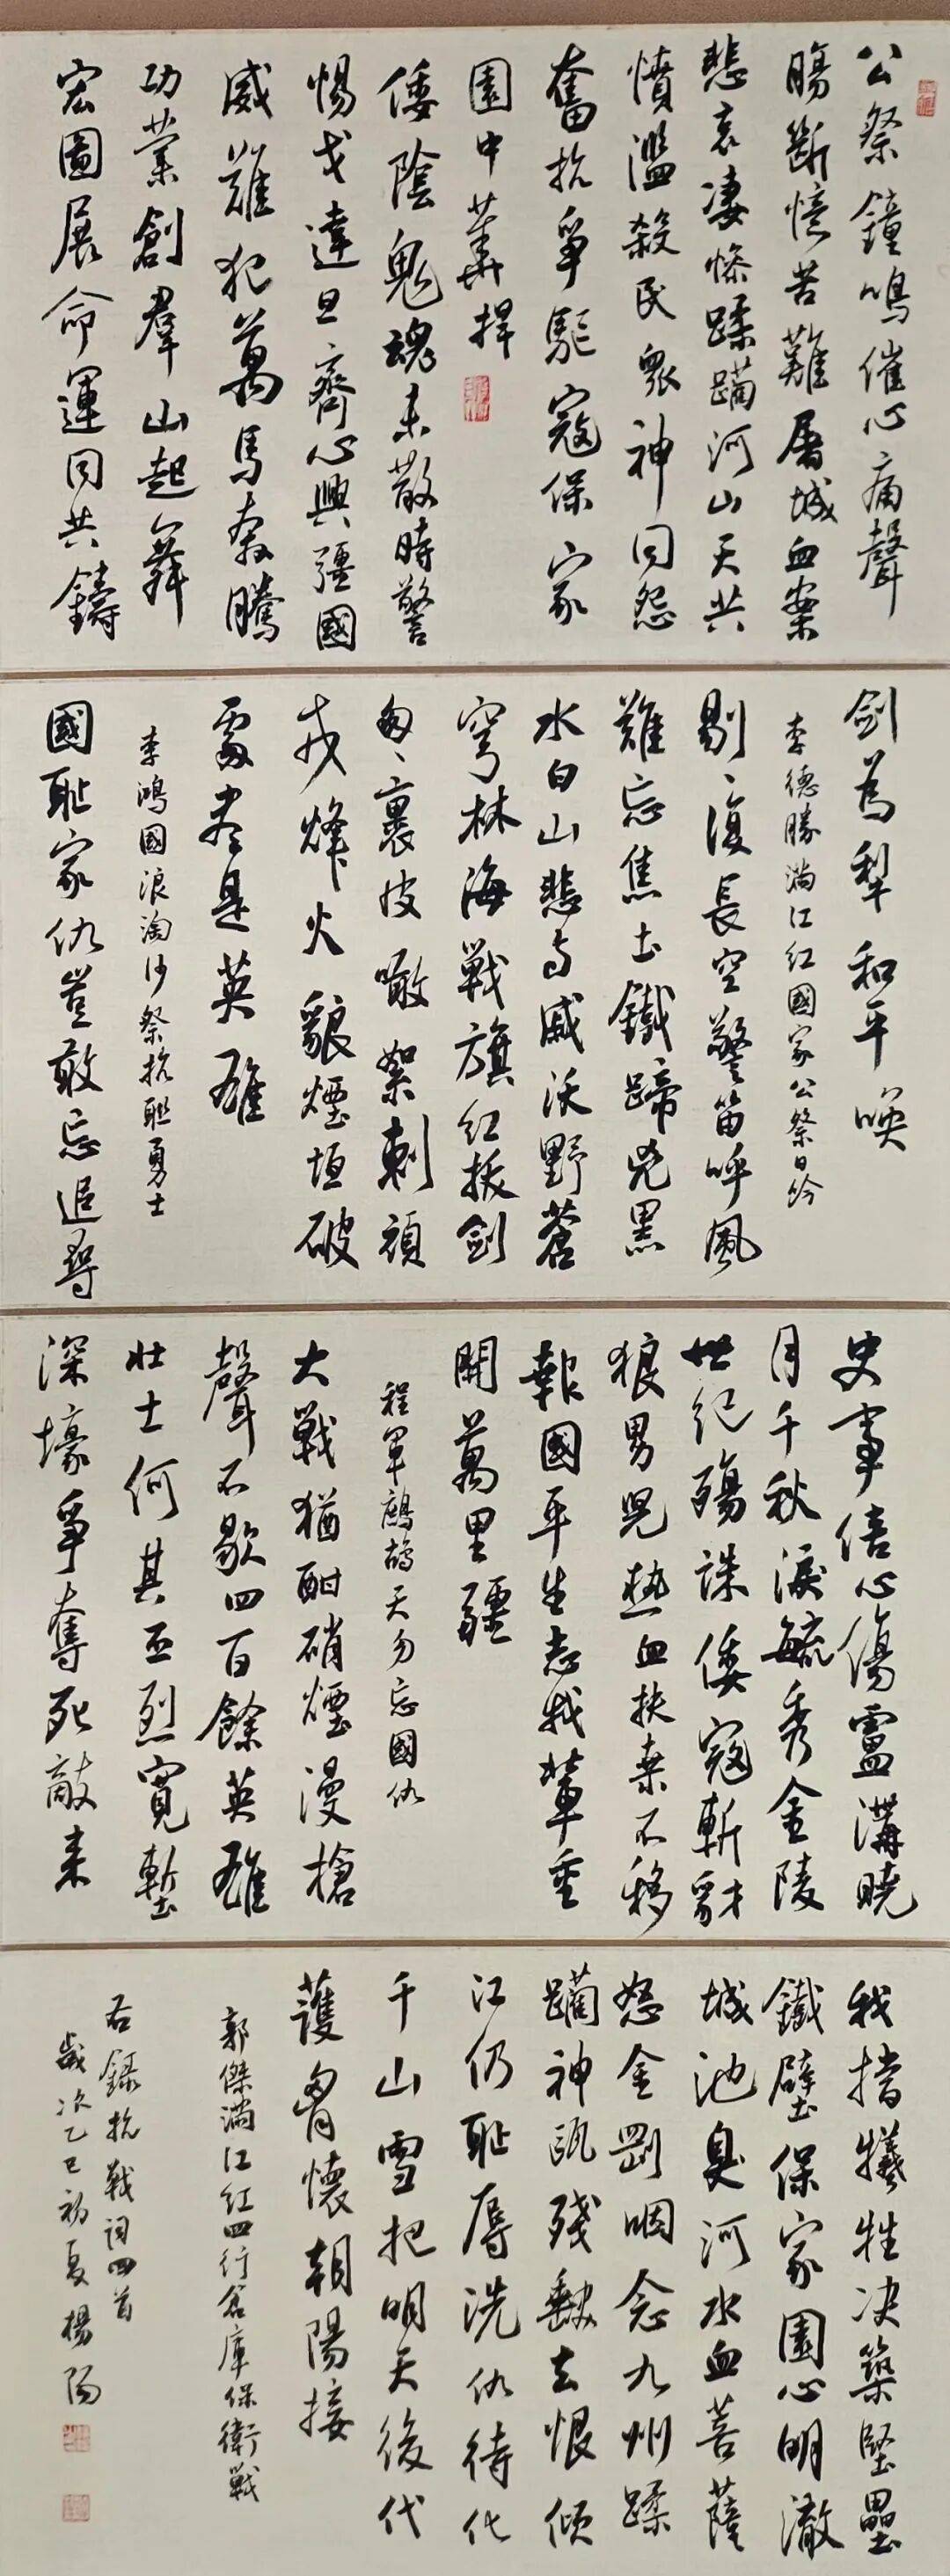 公祭鐘鳴催心痛聲
腸斷憶苦難屠城血案
悲哀凄慘蹂躪河山天共
憤濫殺民衆神同怨
奮抗爭驅寇保家
園中華捍
倭陰鬼魂未散時警
惕戈達旦齊心興強國
威難犯萬馬奔騰
功業創群山起舞
宏圖展命運同共鑄
劍為犁和平喚
李德勝滿江紅國家公祭日吟
剔剔復長空警笛呼風
難忘焦土鐵蹄兇黑
水白山悲與戚沃野蒼
穹林海戰旗紅拔劍
匆匆裹皮嚼絮刺頑
戎烽火貌煙垣破
處盡是英雄
李鴻國浪淘沙祭抗聯勇士
國恥家仇豈敢忘追尋
史事倍心傷盧溝曉
月千秋淚毓秀金陵
世紀殤誅倭寇斬豺
狼男兒熱血扶桑不移
報國平生志我輩重
開萬里疆
程軍鷓鴣天勿忘國仇
大戰猶酣硝煙漫槍
聲不歇四百餘英雄
壯士何其丕烈寬塹
深壕爭奪死敵來
我擋犧牲决築堅壘
鐵壁保家園心明澈
城池臭河水血菩薩
怒金剛咽念九州蹂
躪神甌殘缺去恨傾
江仍恥辱洗仇待化
千山雪把明天後代
護胸懷朝陽接
郭傑滿江紅四行倉庫保衛戰
右錄抗戰詞四首
歲次乙巳初夏楊陽